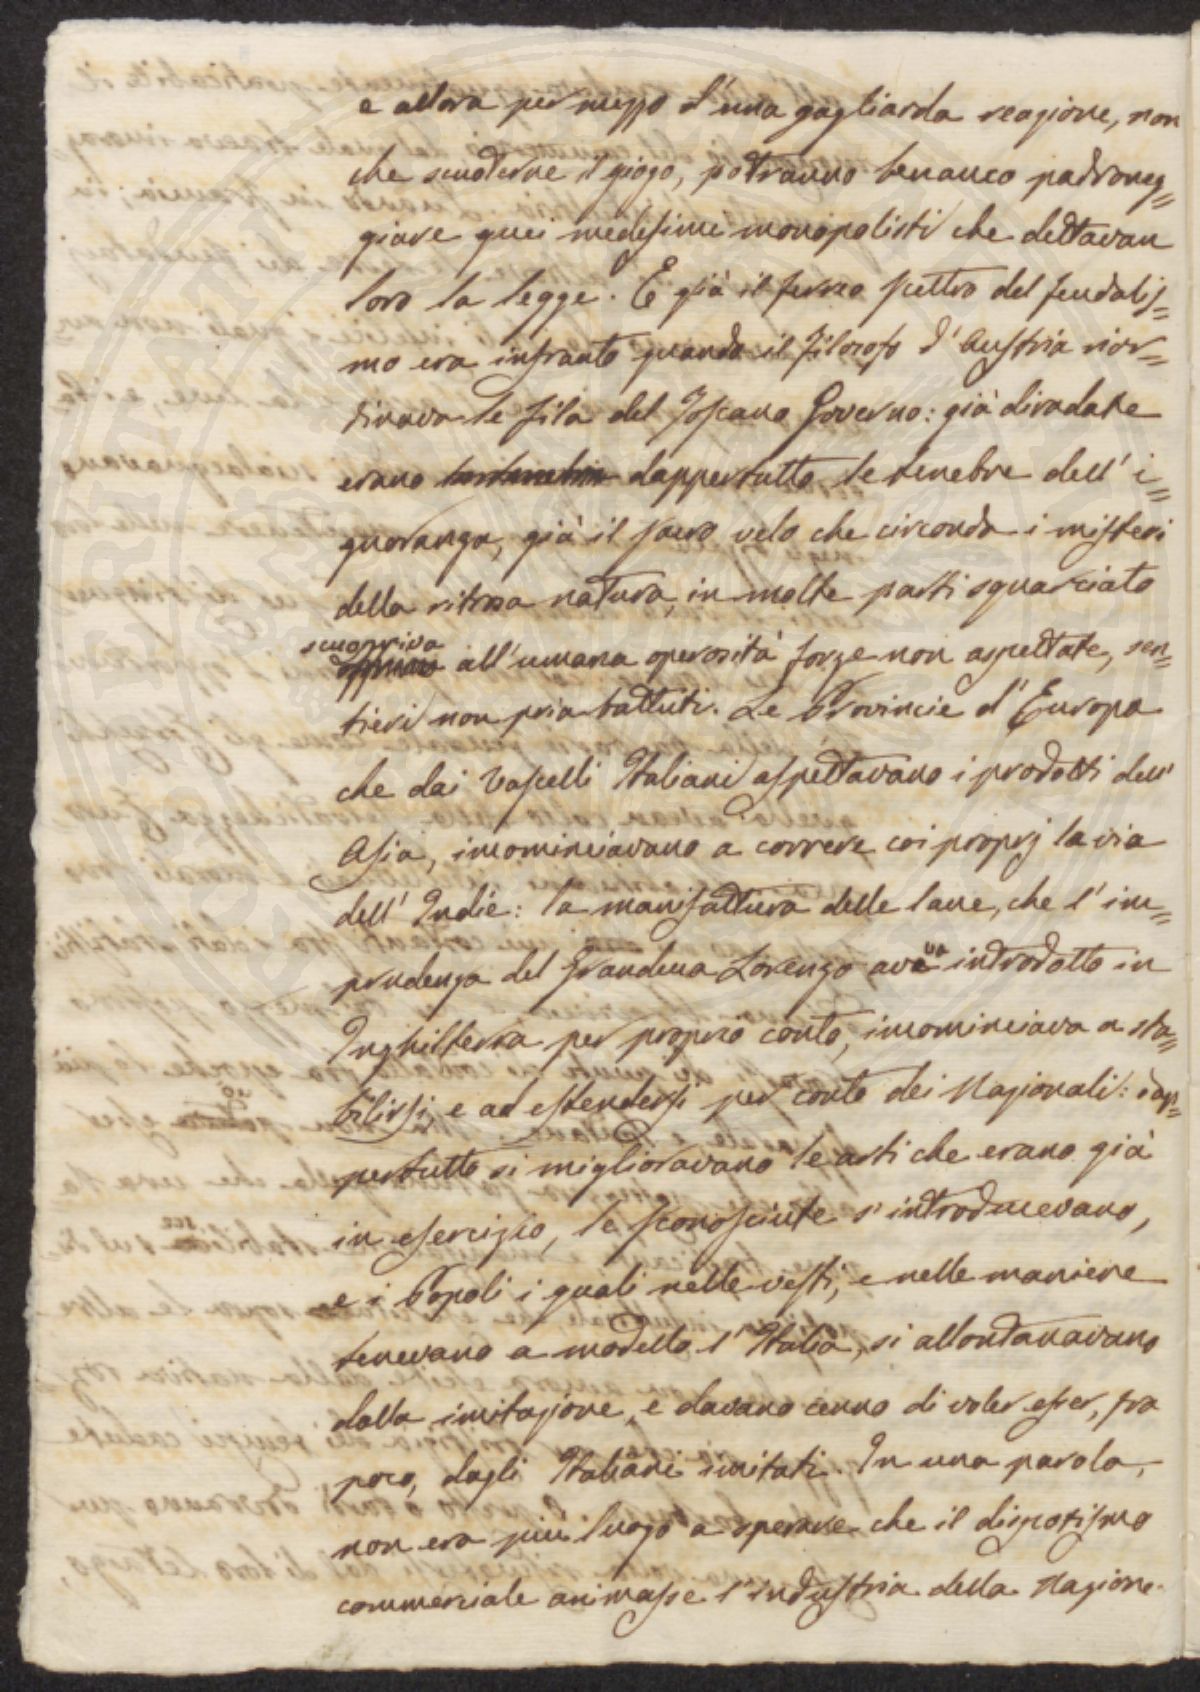 e allora per mezzo d'una gagliarda reazione, non
che scuoterne il giogo, potranno benanco padroneg=
giare quei medesimi monopolisti che dettavan
loro la legge. E già il ferreo scettro del feudalis=
mo era infranto quando il Filosofo d'Austria rior=
dinava le fila del Toscano Governo: già diradate
erano dappertutto le tenebre dell'i=
gnoranza, già il sacro velo che circonda i misteri
della ritrosa natura, in molte parti squarciato
scuopriva
all'umana operosità forze non aspettate, sen=
tieri non pria battuti. Le Provincie d'Europa
che dai Vascelli Italiani aspettavano i prodotti dell'
Asia, incominciavano a correre coi proprj la via
dell'Indie: la manifattura delle lane, che l'im=
prudenza del Granduca Lorenzo aveva introdotto in
Inghilterra per proprio conto, incominciava a sta=
bilirsi, e ad estendersi per conto dei Nazionali: dap=
pertutto si miglioravano le arti che erano già
in esercizio, le sconosciute s'introducevano,
e i Popoli i quali nelle vesti, e nelle maniere
tenevano a modello l'Italia, si allontanavano
dalla imitazione, e davano cenno di voler esser, fra
poco, dagli Italiani imitati. In una parola,
non era più luogo a sperare che il dispotismo
commerciale animasse l'industria della Nazione.